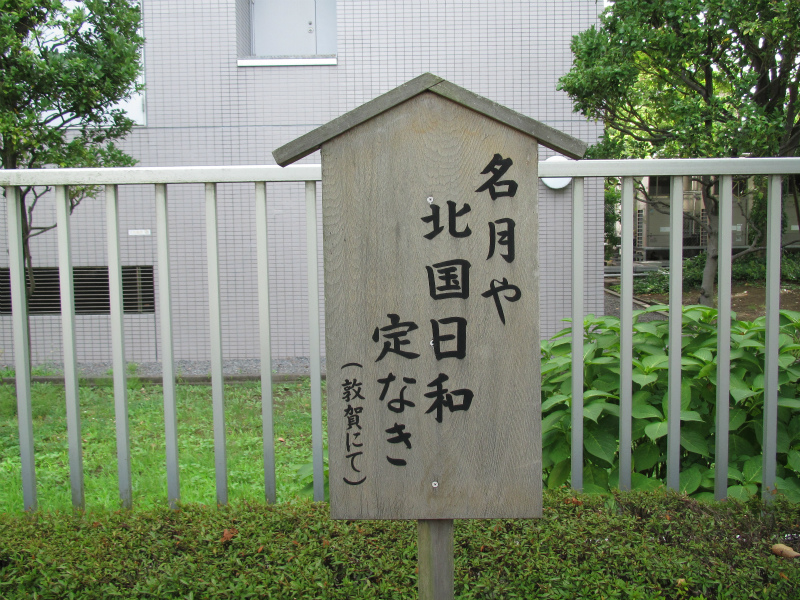 名月や
北国日和
定なき
(敦賀にて)